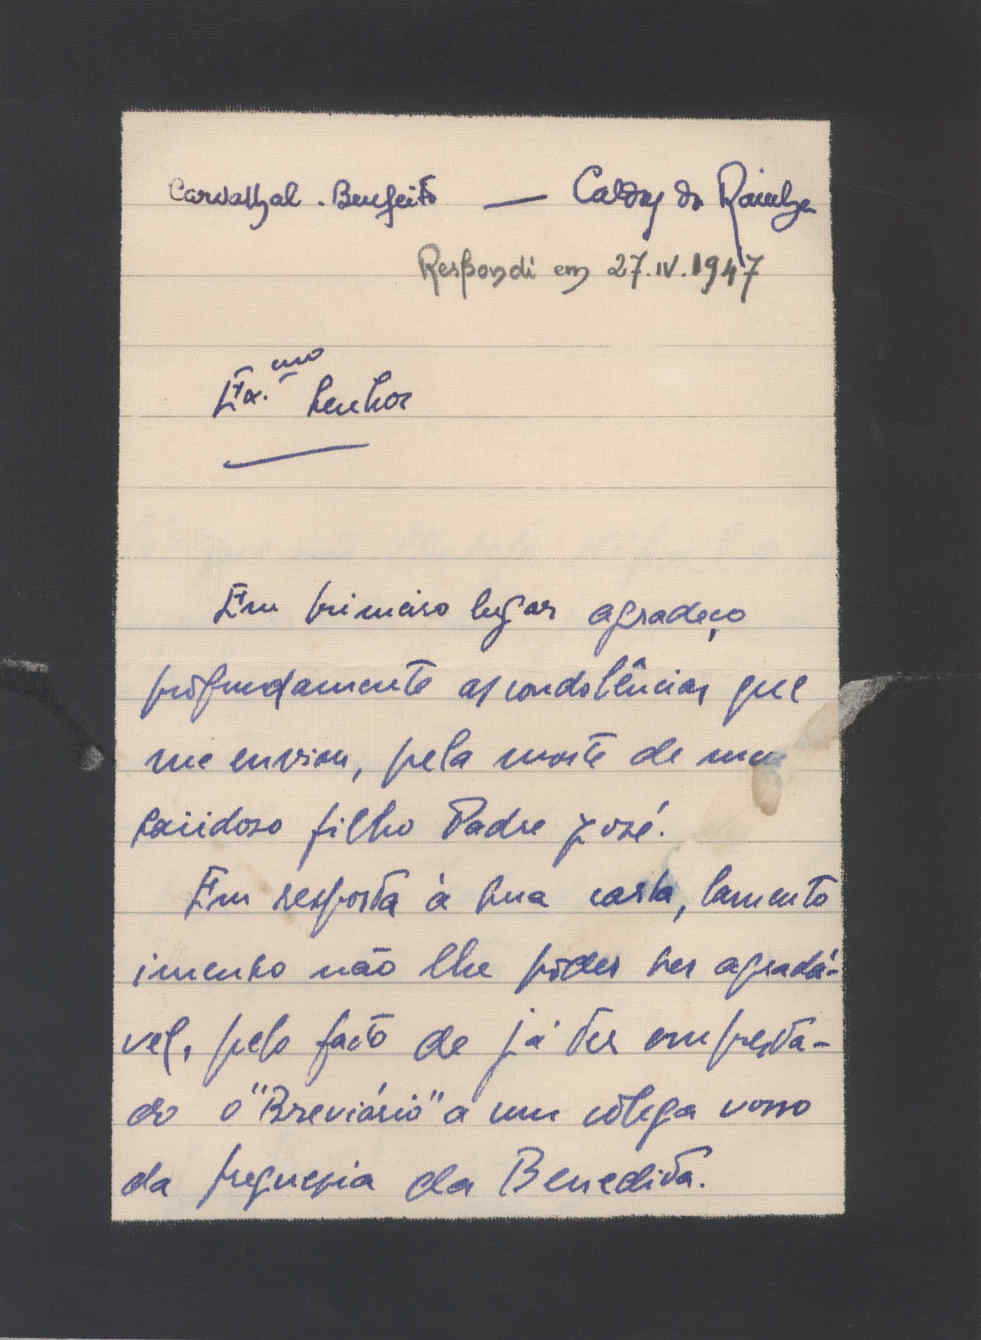 Carvalhal. Benfeito — Caldas da Rainha
Respondi em 27.IV.1947
Ex.mo Senhor
Em primeiro lugar agradeço
profundamente as condolências que
me enviou, pela morte de meu
saüdoso filho Padre José.
Em resposta à sua carta, lamento
imenso não lhe poder ser agradá-
vel, pelo facto de já ter empresta-
do o "Breviário" a um colega vosso
da freguesia da Benedita.